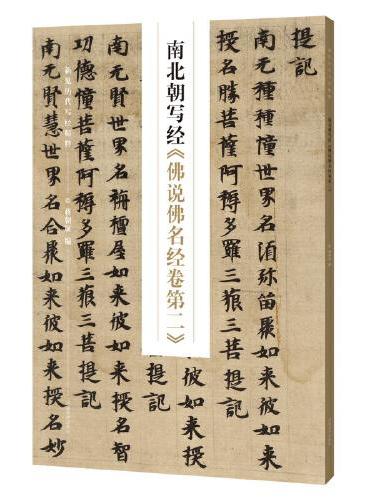 提記
南无種種世界名須弥留聚如来彼如来
授名勝菩薩阿耨多羅三藐三菩提記
南北朝写经《佛说佛名经卷第二》
南无賢世界名栴檀屋如来彼如来授名智
功德幢菩薩阿耨多羅三藐三菩提記
南无賢慧世界名合聚如来彼如来授名妙